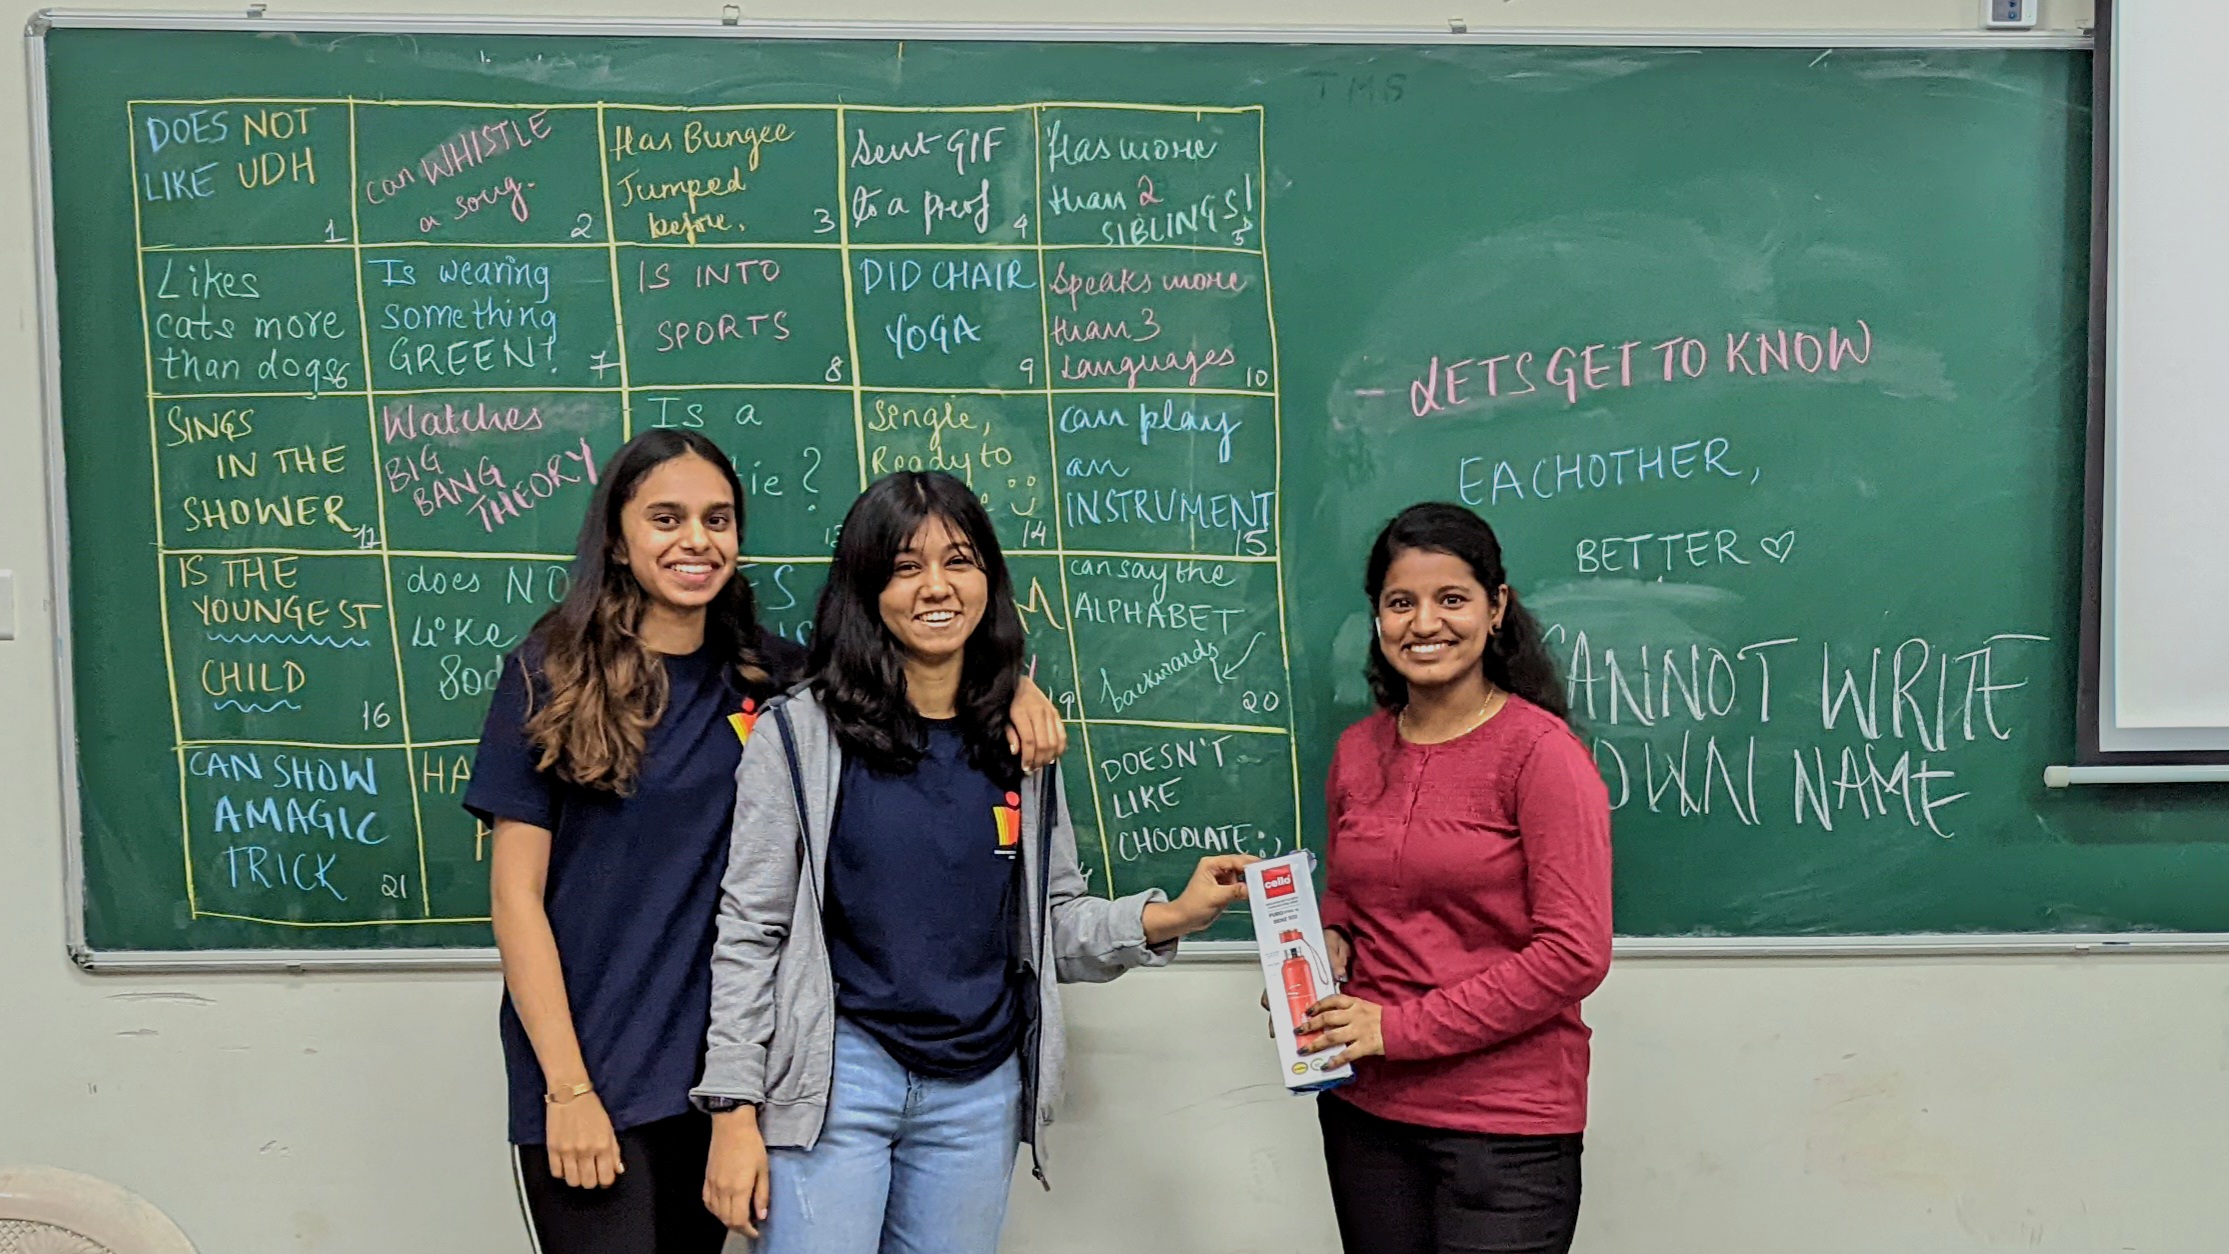 TMB
DOES NOT
LIKE UDH
1
can WHISTLE
a song.
2
Has Bungee
Jumped
before.
3
Sent GIF
to a prof
4
Has more
than 2
SIBLINGS!
5
Likes
cats more
than dogs
6
Is wearing
something
GREEN!
7
IS INTO
SPORTS
8
DID CHAIR
YOGA
9
Speaks more
than 3
Languages
10
SINGS
IN THE
SHOWER
11
Watches
BIG
BANG
THEORY
Is a
?
Single,
Ready to
14
can play
an
INSTRUMENT
15
IS THE
YOUNGEST
CHILD
16
does
Like
can say the
ALPHABET
backwards
20
CAN SHOW
A MAGIC
TRICK
21
DOESN'T
LIKE
CHOCOLATE :)
- LETS GET TO KNOW
EACHOTHER,
BETTER ♡
CANNOT WRITE
OWN NAME
cello